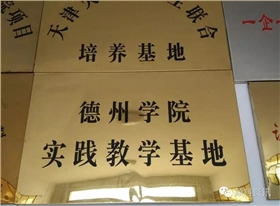 项目
天津
联合
培养基地
一企
德州学院
实践教学基地